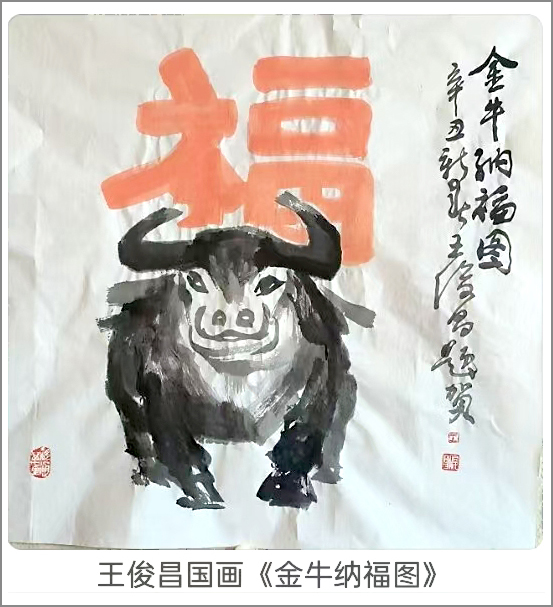 福
金牛纳福图
辛丑新春王俊昌题贺
王俊昌国画《金牛纳福图》